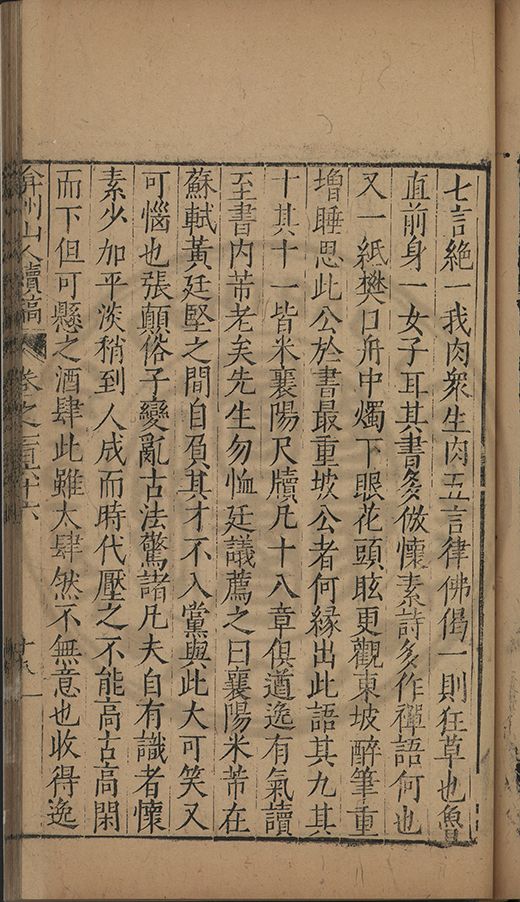 七言絕一我肉衆生肉五言律佛偈一則狂草也魯
直前身一女子耳其書多倣懷素詩多作禪語何也
又一紙樊口舟中燭下眼花頭眩更觀東坡醉筆重
增睡思此公於書最重坡公者何緣出此語其九其
十其十一皆米襄陽尺牘凡十八章俱遒逸有氣讀
至書内芾老矣先生勿恤廷議薦之曰襄陽米芾在
蘇軾黃廷堅之間自負其才不入黨與此大可笑又
可惱也張顛俗子變亂古法驚諸凡夫自有識者懷
素少加平淡稍到人成而時代壓之不能高古高閑
而下但可懸之酒肆此雖太肆然不無意也收得逸
弇州山人續稿 卷之一百六十六 十八